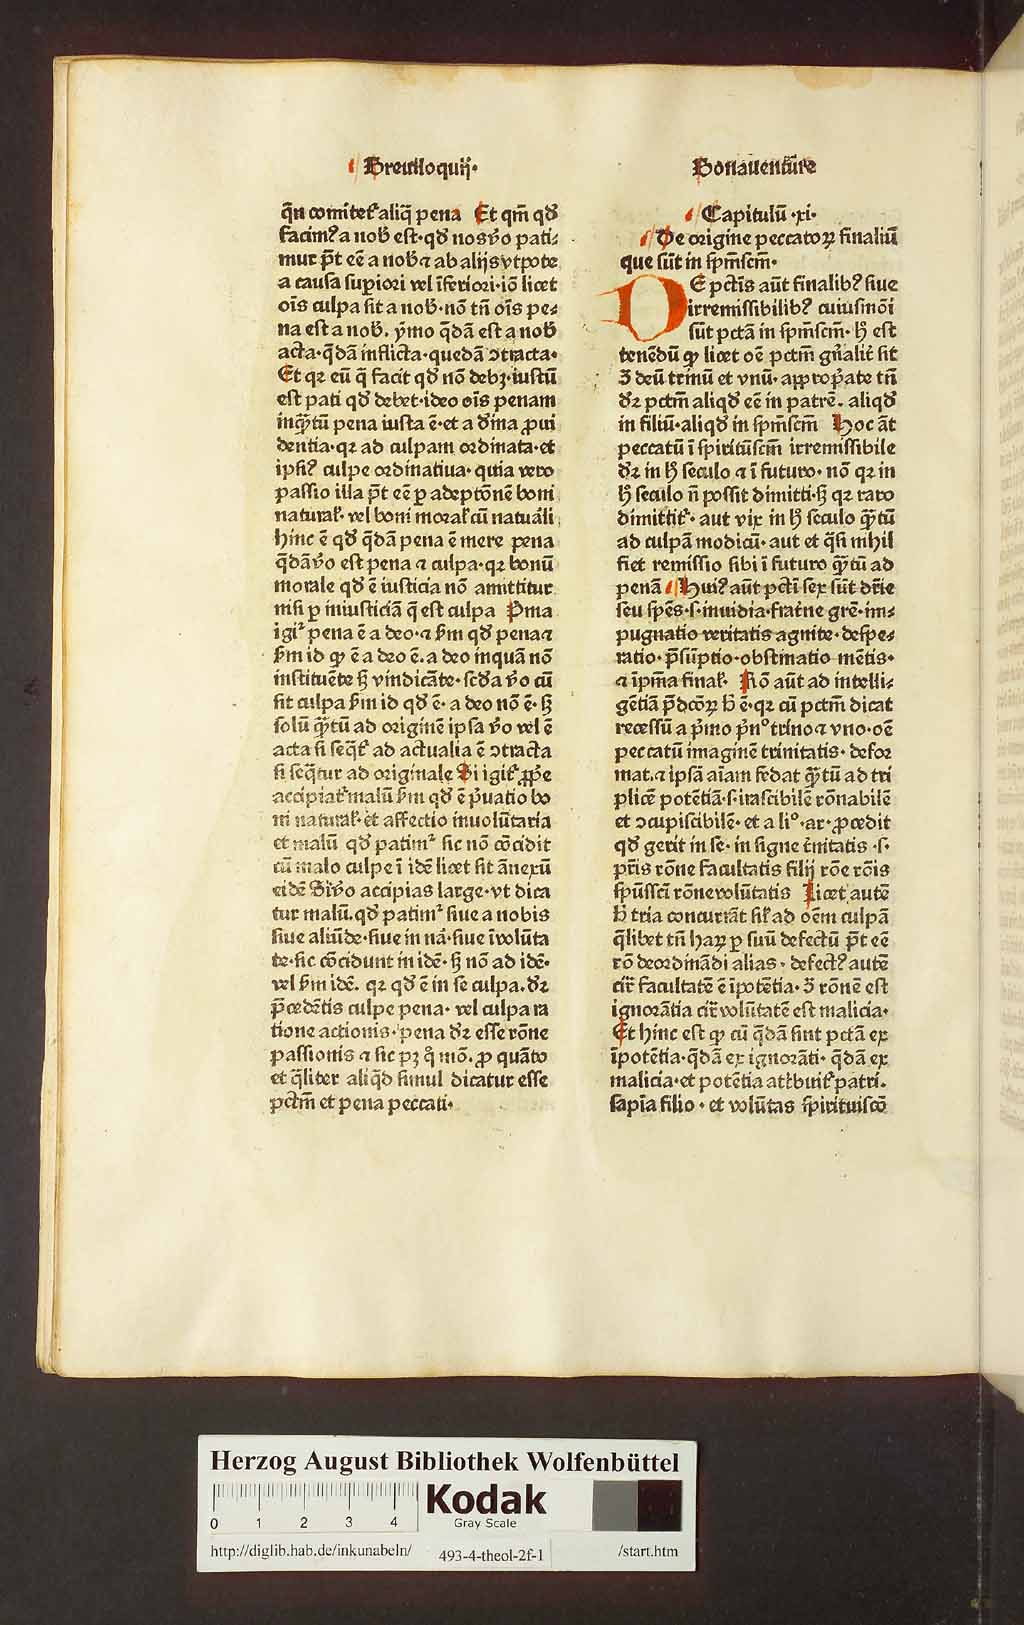 Breuiloquij·
Bonauenture
q̄n comitet᷑ aliq̄ pena Et qm̄ qd̄
facimꝰ a nob̄ est· qd̄ nos v̄o pati⸗
mur p̄t eē a nob̄ ⁊ ab alijs vtpote
a causa suꝑiori vel īferiori· iō licet
oīs culpa sit a nob̄· nō tn̄ oīs pe⸗
na est a nob̄. ymo q̄dā est a nob̄
acta· q̄dā inflicta· quedā ↄtracta·
Et qꝛ eū q̄ facit qd̄ nō debꝫ· iustū
est pati qd̄ debet· ideo oīs penam
inq̄ꝫtū pena iusta ē· et a dīna ꝓui
dentia· qꝛ ad culpam ordinata· et
ipsiꝰ culpe ordinatiua· quia vero
passio illa p̄t eē ꝑ adeptōnē boni
natural̓· vel boni moral̓ cū natuāli
hinc ē qd̄ q̄dā pena ē mere pena
q̄dā v̄o est pena ⁊ culpa· qꝛ bonū
morale qd̄ ē iusticia nō amittitur
nisi ꝑ iniusticiā q̄ est culpa Pma
igit᷑ pena ē a deo· ⁊ ẜm qd̄ pena ⁊
ẜm id ꝙ ē a deo ē. a deo inquā nō
instituēte sꝫ vindicāte· scd̄a v̄o cū
sit culpa ẜm id qd̄ ē· a deo nō ē· sꝫ
solū q̄ꝫtū ad originē ipsa v̄o vel ē
acta si seq̄t᷑ ad actualia ē ↄtracta
si seq̄tur ad originale Si igit᷑ ꝓpͤe
accipiat᷑ malū ẜm qd̄ ē p̄uatio bo
ni natural̓· et affectio inuolūtaria
et malū qd̄ patim᷑ sic nō cōcidit
cū malo culpe ī idē licet sit ānexū
eidē Si v̄o accipias large· vt dica
tur malū. qd̄ patim᷑ siue a nobis
siue aliūde· siue in nā· siue īuolūta
te· sic cōcidunt in idē· sꝫ nō ad idē·
vel ẜm idē. qꝛ qd̄ ē in se culpa. dꝛ
p̄cedētis culpe pena· vel culpa ra
tione actionis· pena dꝛ esse rōne
passionis ⁊ sic pꝫ q̊ mō. ꝓ quāto
et q̄liter aliq̄d simul dicatur esse
pctm̄ et pena peccati·
Capitulū ·xi·
De origine peccatoꝝ finaliū
que sūt in spm̄scm̄·
DE pctīs aūt finalibꝰ siue
irremissibilibꝰ cuiusmōi
sūt pctā in spm̄scm̄· hꝫ est
tenēdū ꝙ licet oē pctm̄ gn̄alit᷑ sit
ↄ̄ deū trinū et vnū· approp̄ate tn̄
dꝛ pctm̄ aliqd̄ eē in patrē. aliqd̄
in filiū· aliqd̄ in spm̄scm̄ Hoc āt
peccatū ī spiritūscm̄ irremissibile
dꝛ in hꝫ seculo ⁊ ī futuro· nō qꝛ in
hꝫ seculo n̄ possit dimitti· sꝫ qꝛ raro
dimittit᷑· aut vix in hꝫ seculo q̄ꝫtū
ad culpā modicū· aut et q̄si nihil
fiet remissio sibi ī futuro q̄ꝫtū ad
penā Huiꝰ aūt pcti sex sūt dr̄ie
seu spēs· s· inuidia· frat̄ne grē· im⸗
pugnatio veritatis agnite· despe⸗
ratio· p̄sūptio· obstinatio mētis·
⁊ īpm̄a final̓· Rō aūt ad intelli⸗
gētiā p̄dc̄oꝝ h̄ ē· qꝛ cū pctm̄ dicat
recessū a p̄mo p̄n° trino ⁊ vno· oē
peccatū imaginē trinitatis· defor
mat. ⁊ ipsā aīam fedat q̄ꝫtū ad tri
plicē potētiā· s· irascibilē rōnabilē
et ↄcupiscibilē· et a li° · ar· ꝓcedit
qd̄ gerit in se· in signe t̄nitatis ·s·
pr̄is rōne facultatis filij rōe rōis
spūssc̄i rōne volūtatis Licet autē
h̄ tria concurrāt sil̓ ad oēm culpā
q̄libet tn̄ haꝝ ꝑ suū defectū p̄t eē
rō deordināndi alias· defectꝰ autē
cir̄ facultatē ē īpotētia· ↄ̄ rōnē est
ignorātia cir̄ volūtatē est malicia·
Et hinc est ꝙ cū q̄dā sint pctā ex
īpotētia· q̄dā ex ignorāti· q̄dā ex
malicia· et potētia att̄buit᷑ patri.
sapīa filio · et volūtas spirituiscō
Herzog August Bibliothek Wolfenbüttel
0 1 2 3 4
Kodak
Gray Scale
http://diglib.hab.de/inkunabeln/ 493-4-theol-2f-1 /start.htm